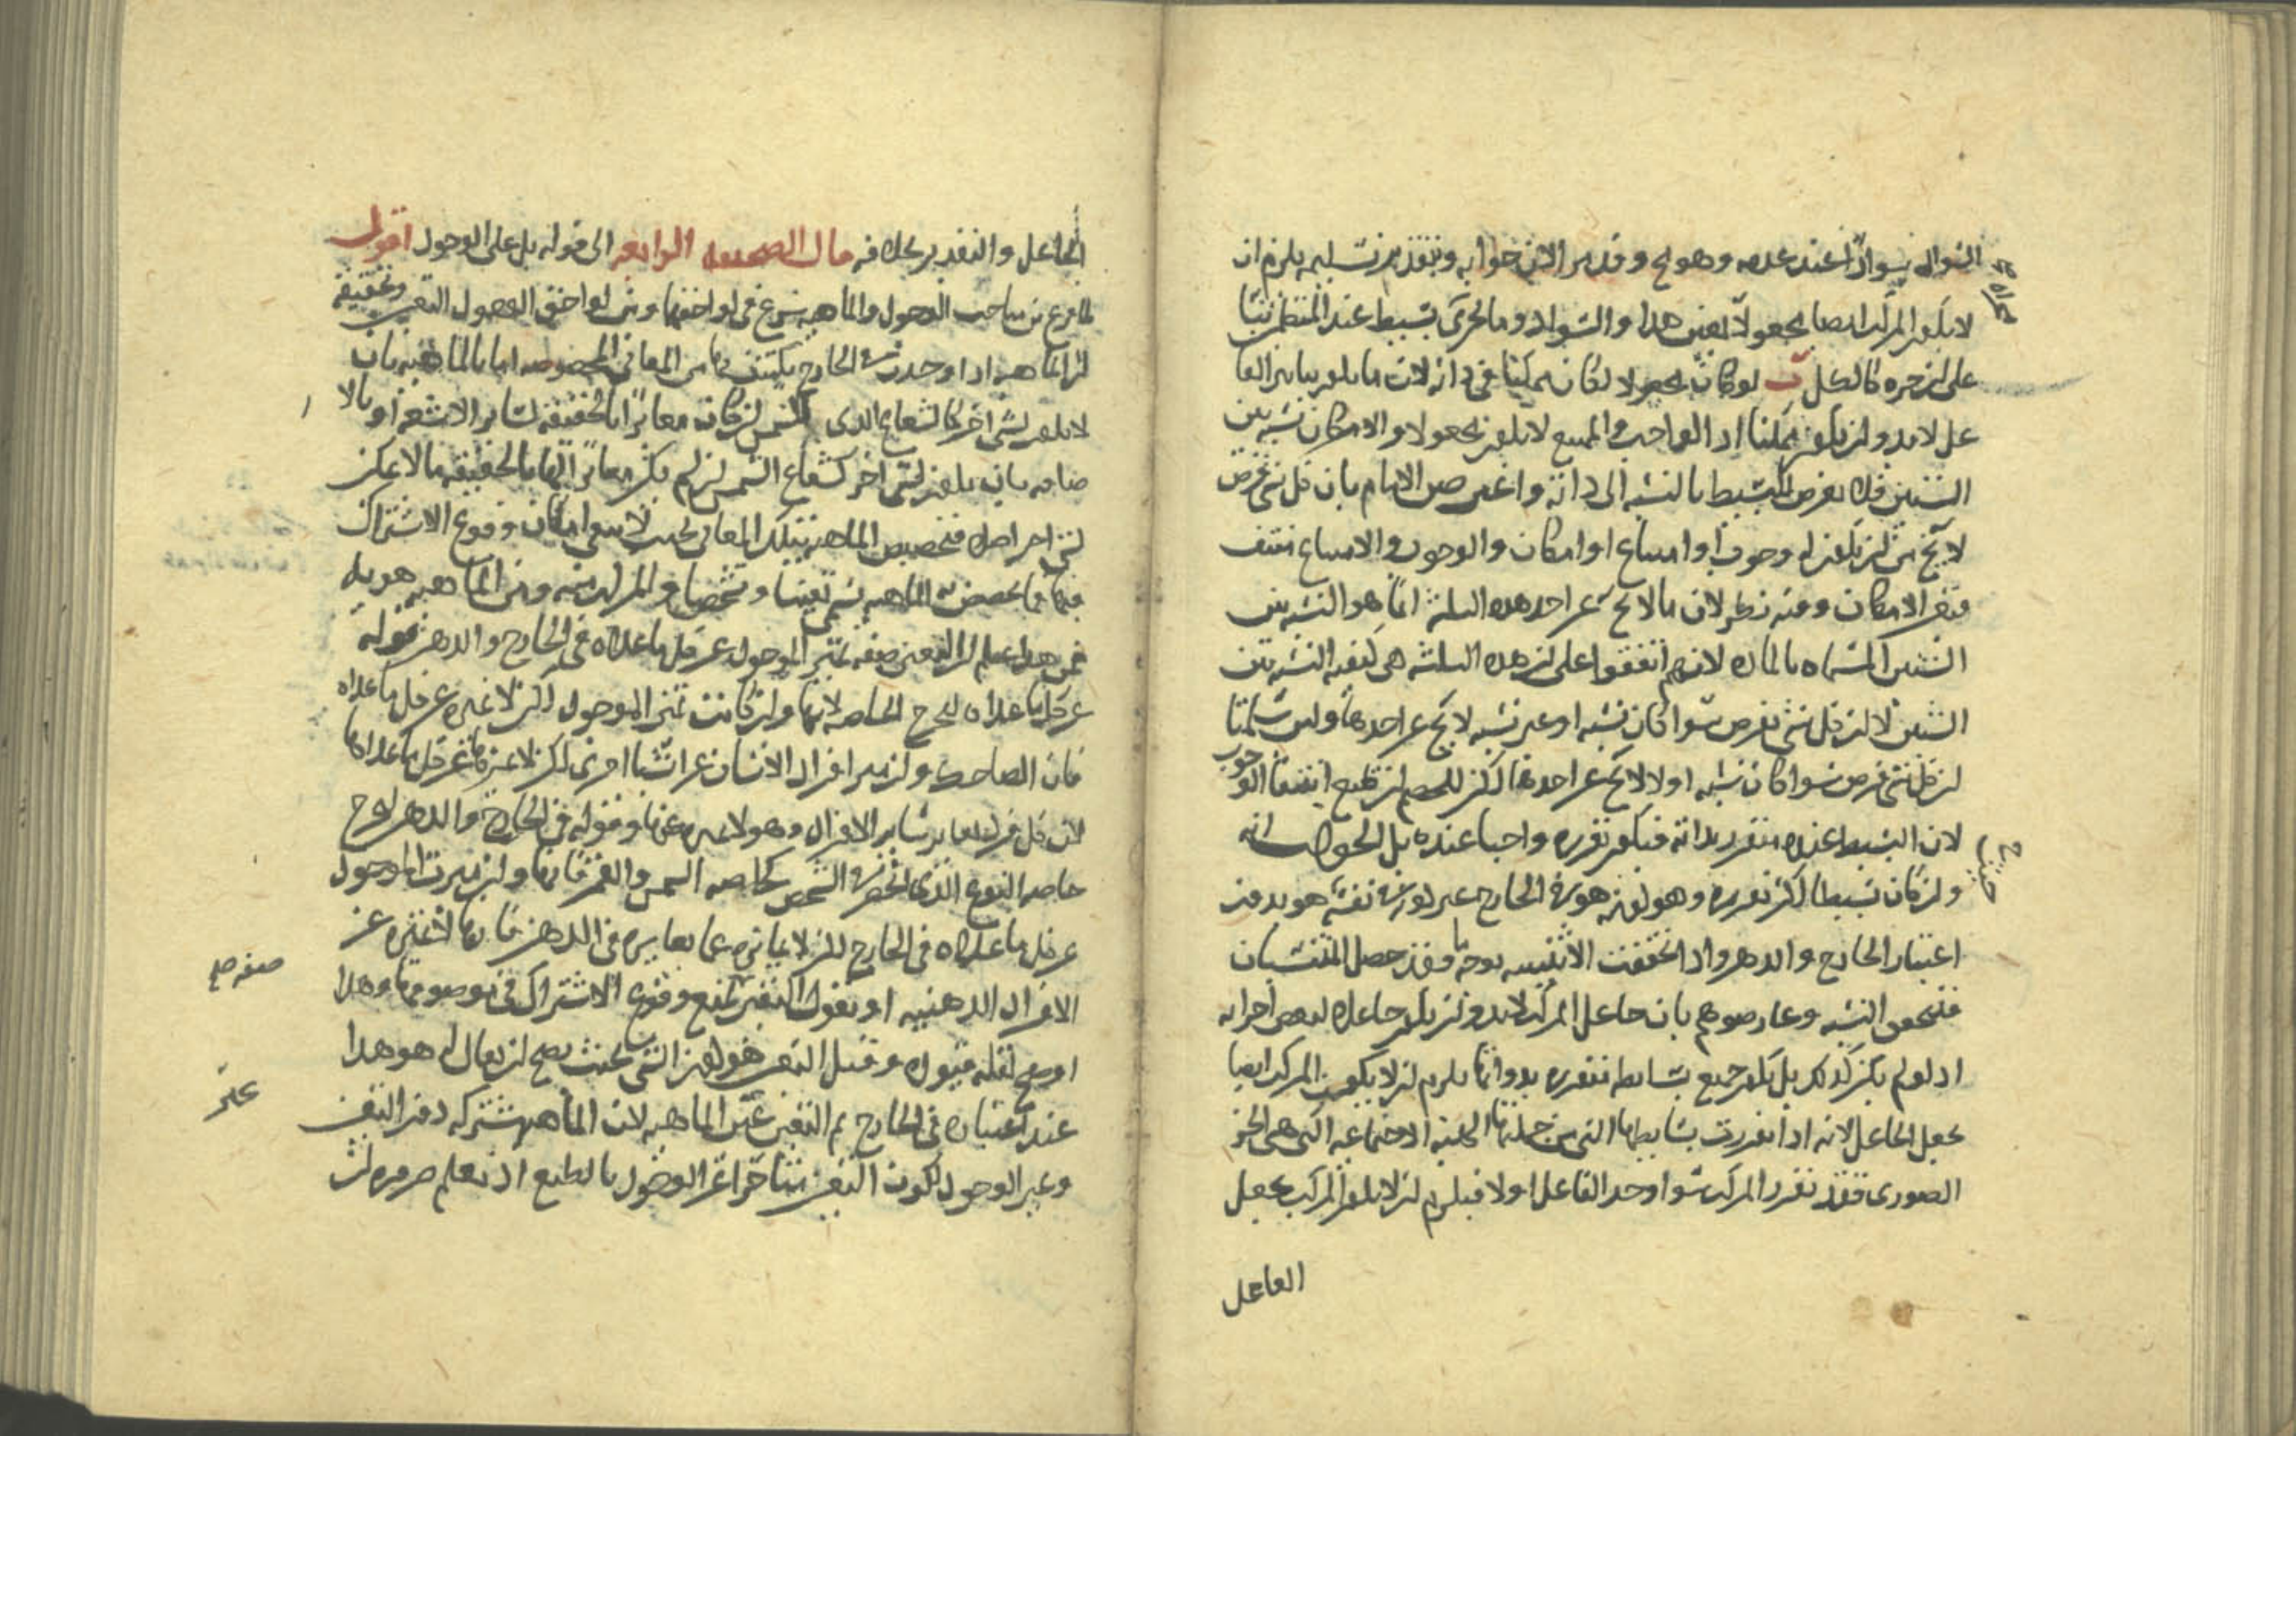 السواد سوادا عند عدمه وهو مح وقد مر الان جوابه وبتقدير تسليمه يلزم ان
لا يكون المركب ايضا مجعولا بعين هذا والسواد وما يجرى بسيط عند المتكلم بناء
على ان جزءه كالكل ب لو كان مجعولا لكان ممكنا فى ذاته لان ما يكون بتاثير الفا
عل لابد وان يكون ممكنا اذ الواجب والممتنع لا يكون مجعولا والامكان نسبة بين
الشيئين فلا يعرض للبسيط بالنسبة الى ذاته واعترض الامام بان كل شئ يفرض
لا يخ من ان يكون له وجوب او امتناع او امكان والوجوب والامتناع منتف
فتعين الامكان وفيه نظر لان ما لا يخ عن احد هذه الثلثة انما هو النسبة بين
الشيئين المسماة بالمادة لانهم اتفقوا على ان هذه الثلثة هى كيفية النسبة بين
الشيئين لا ان كل شئ يفرض سوا كان نسبة او غير نسبة لا يخ عن احدها ولئن سلمنا
ان كل شئ يفرض سوا كان نسبة او لا لا يخ عن احدها لكن للخصم ان يمنع انتفا الوجوب
لان البسيط عنده متقرر بذاته فيكون تقرره واجبا عنده بل الجواب انه
وان كان بسيطا لكن تقرره وهو كونه هو فى الخارج غير كونه نفسه هو بدون
اعتبار الخارج والذهن واذا تحققت الاثنينية بوجه ما فقد حصل المنتسبان
فتتحقق النسبة وعارضوهم بان جاعل المركب لابد وان يكون جاعلا لبعض اجزائه
اذ لو لم يكن كذلك بل يكون جميع بسائطه متقررة بدونه يلزم ان لا يكون المركب ايضا
بجعل الجاعل لانه اذا تقررت بسائطها التى من جملتها الهيئة الاجتماعية التى هى الجزء
الصورى فقد تقرر المركب سوا وجد الفاعل او لا فيلزم ان لا يكون المركب بجعل
الفاعل
الجاعل والتقدير بخلافه قال الصحيفة الرابعة الى قوله بل على الوجود اقول
لما فرغ من مباحث الوجود والماهية شرع فى لواحقها ومن لواحق الوجود التعين وتحقيقه
ان الماهية اذا وجدت فى الخارج يكتنف بها من المعانى المخصوصة اما بالماهية بان
لا يكون لشئ اخر كالشعاع الذى للشمس ان كان مغايرا بالحقيقة لسائر الاشعة او بالا
ضافة بان يكون لشئ اخر كشعاع الشمس ان لم يكن مغايرا لها بالحقيقة ما لا يمكن
لشئ اخر اصلا فتخصيص الماهية بتلك المعانى بحيث لا يبقى امكان وقوع الاشتراك
فيها فما تخصص به الماهية يسمى تعينا وتشخصا والمركب منه ومن الماهية هوية
فمن هذا يعلم ان التعين صفة تميز الموجود عن كل ما عداه فى الخارج والذهن فقوله
عن كل ما عداه ليخرج الخاصة لانها وان كانت تميز الموجود لكن لا تميزه عن كل ما عداه
فان الضاحك وان ميز افراد الانسان عن اشيا اخرى لكن لا يميزها عن كل ما عداها
لان كل فرد يغاير سائر الافراد وهو لا يميزه عنها وقوله فى الخارج والذهن ليخرج
خاصة النوع الذى انحصر فى الشخص كخاصة الشمس والقمر فانها وان ميزت الموجود
عن كل ما عداه فى الخارج لكن لا يميزه عما يغايره فى الذهن فانها لا تميزه عن
الافراد الذهنية او نقول التعين تمنع وقوع الاشتراك فى موصوفها وهذا
اوضح لقلة قيوده وقيل التعين هو كون الشئ بحيث يصح ان يقال له هو هذا
عند اعتباره فى الخارج ثم التعين غير الماهية لان الماهية مشتركة دون التعين
وغير الوجود لكون التعين متاخرا عن الوجود بالطبع اذ نعلم ضرورة ان
صفة صح